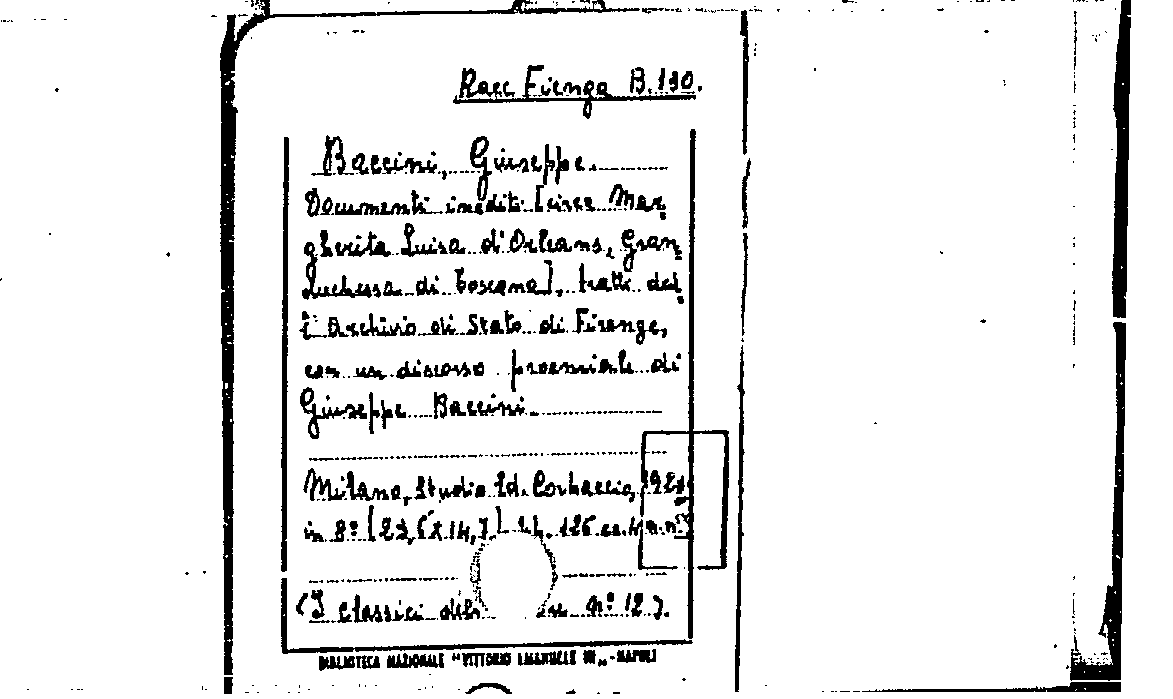 Racc Fienga B.130.
Baccini, Giuseppe.
Documenti inediti [circa Mar=
gherita Luisa d'Orleans, Gran
Duchessa di Toscana], tratti dal=
l'Archivio di Stato di Firenze,
con un discorso proemiale di
Giuseppe Baccini.
Milano, Studio Ed. Corbaccio,
in 8º 126
(I classici nº 12).
BIBLIOTECA NAZIONALE "VITTORIO EMANUELE III" - NAPOLI